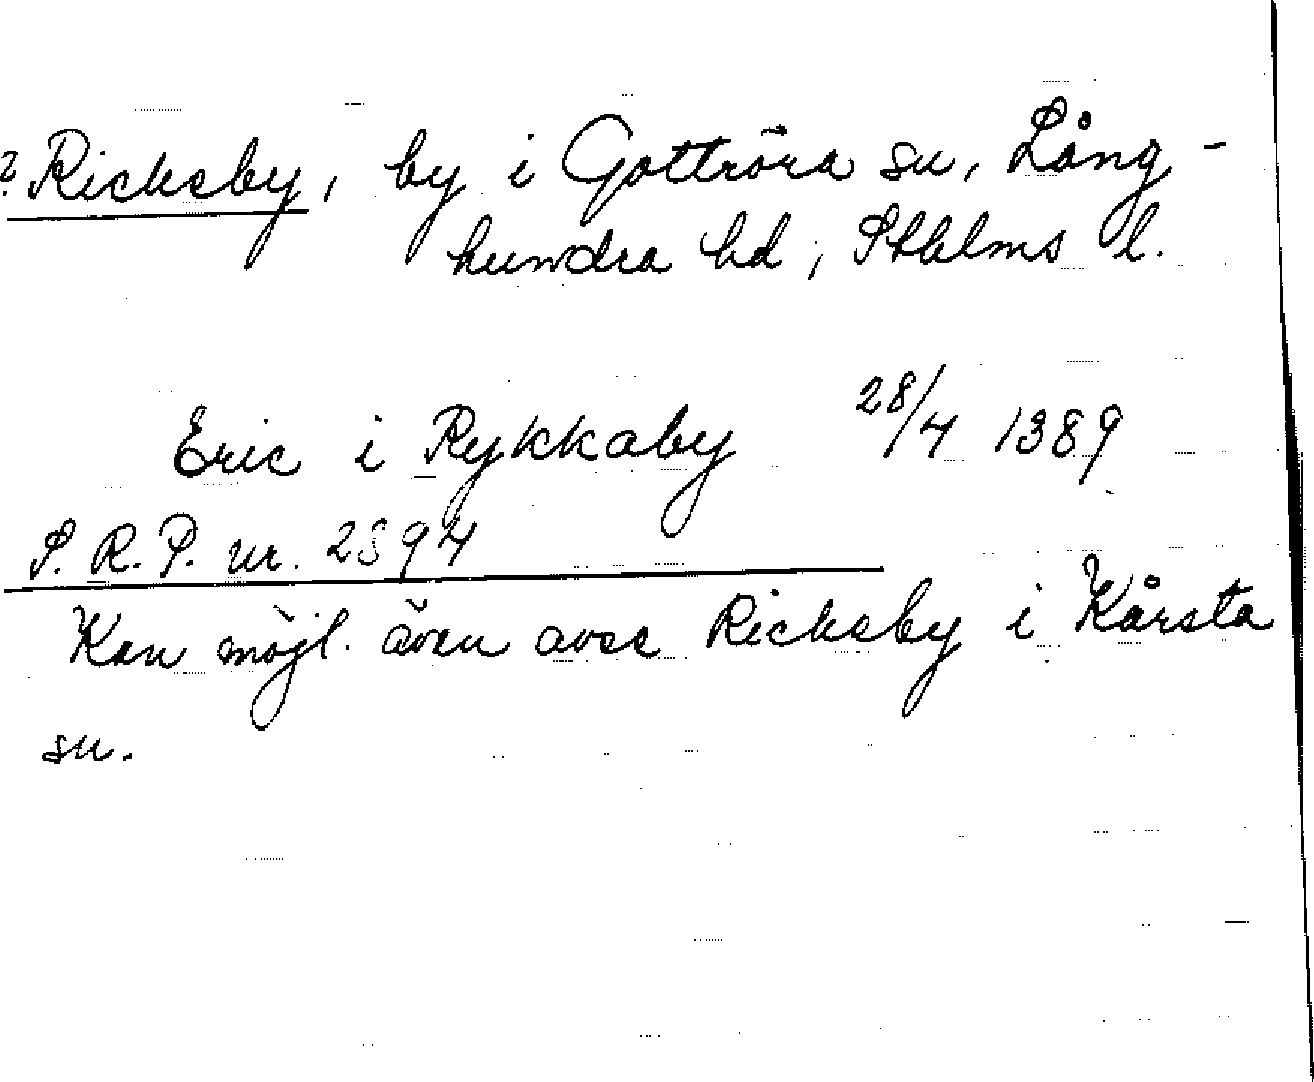 ? Ricksby, by i Gottröra sn, Lång-
hundra hd, Sthlms l.
Eric i Rykkaby 28/4 1389
S. R. P. nr. 2594
Kan möjl. även avse Ricksby i Kårsta
sn.